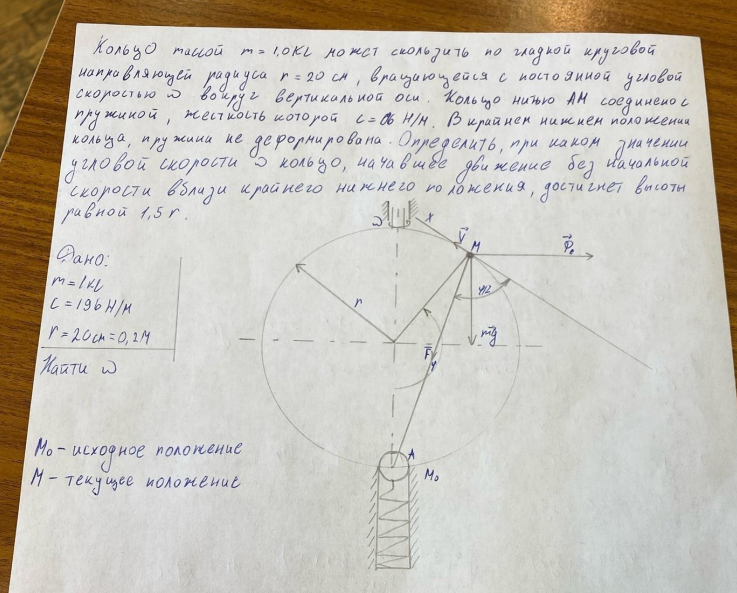 Кольцо массой m = 1,0 кг может скользить по гладкой круговой
направляющей радиуса r = 20 см, вращающейся с постоянной угловой
скоростью ω вокруг вертикальной оси. Кольцо нитью AM соединено с
пружиной, жесткость которой c = Н/м. В крайнем нижнем положении
кольца, пружина не деформирована. Определить, при каком значении
угловой скорости ω кольцо, начавшее движение без начальной
скорости вблизи крайнего нижнего положения, достигнет высоты
равной 1,5 r.
ω
x
V̄
M
Φ̄e
Дано:
m = 1 кг
c = 196 Н/м
r = 20 см = 0,2 м
Найти ω
r
φ/2
F̄
φ
mḡ
M₀ - исходное положение
M - текущее положение
A
M₀